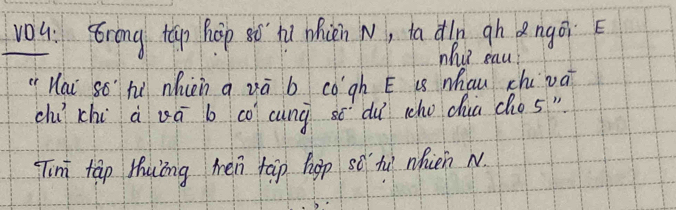 VD4: Trong tập hợp số tự nhiên N, ta đ/n qh 2 ngôi E
như sau:
"Hai số tự nhiên a và b có qh E vs nhau khi và
chỉ khi a và b có cùng số dư khi chia cho 5".
Tìm tập thương trên tập hợp số tự nhiên N.